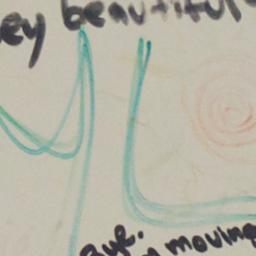 ey beautiful
YL
Bye.
moving